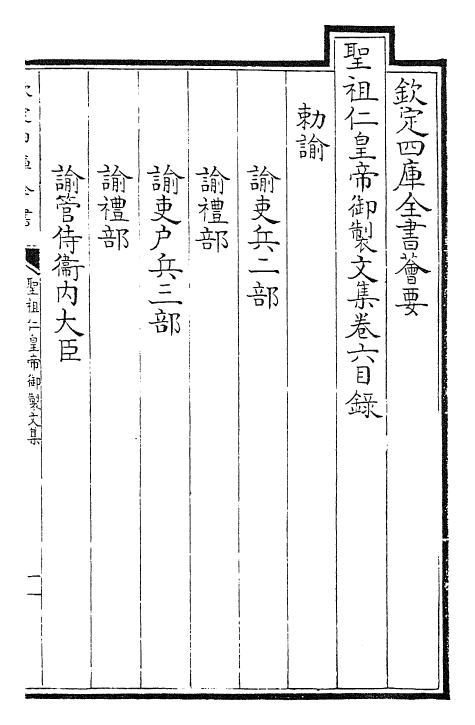 欽定四庫全書薈要
聖祖仁皇帝御製文集卷六目錄
勅諭
諭吏兵二部
諭禮部
諭吏户兵三部
諭禮部
諭管侍衞內大臣
聖祖仁皇帝御製文集
一